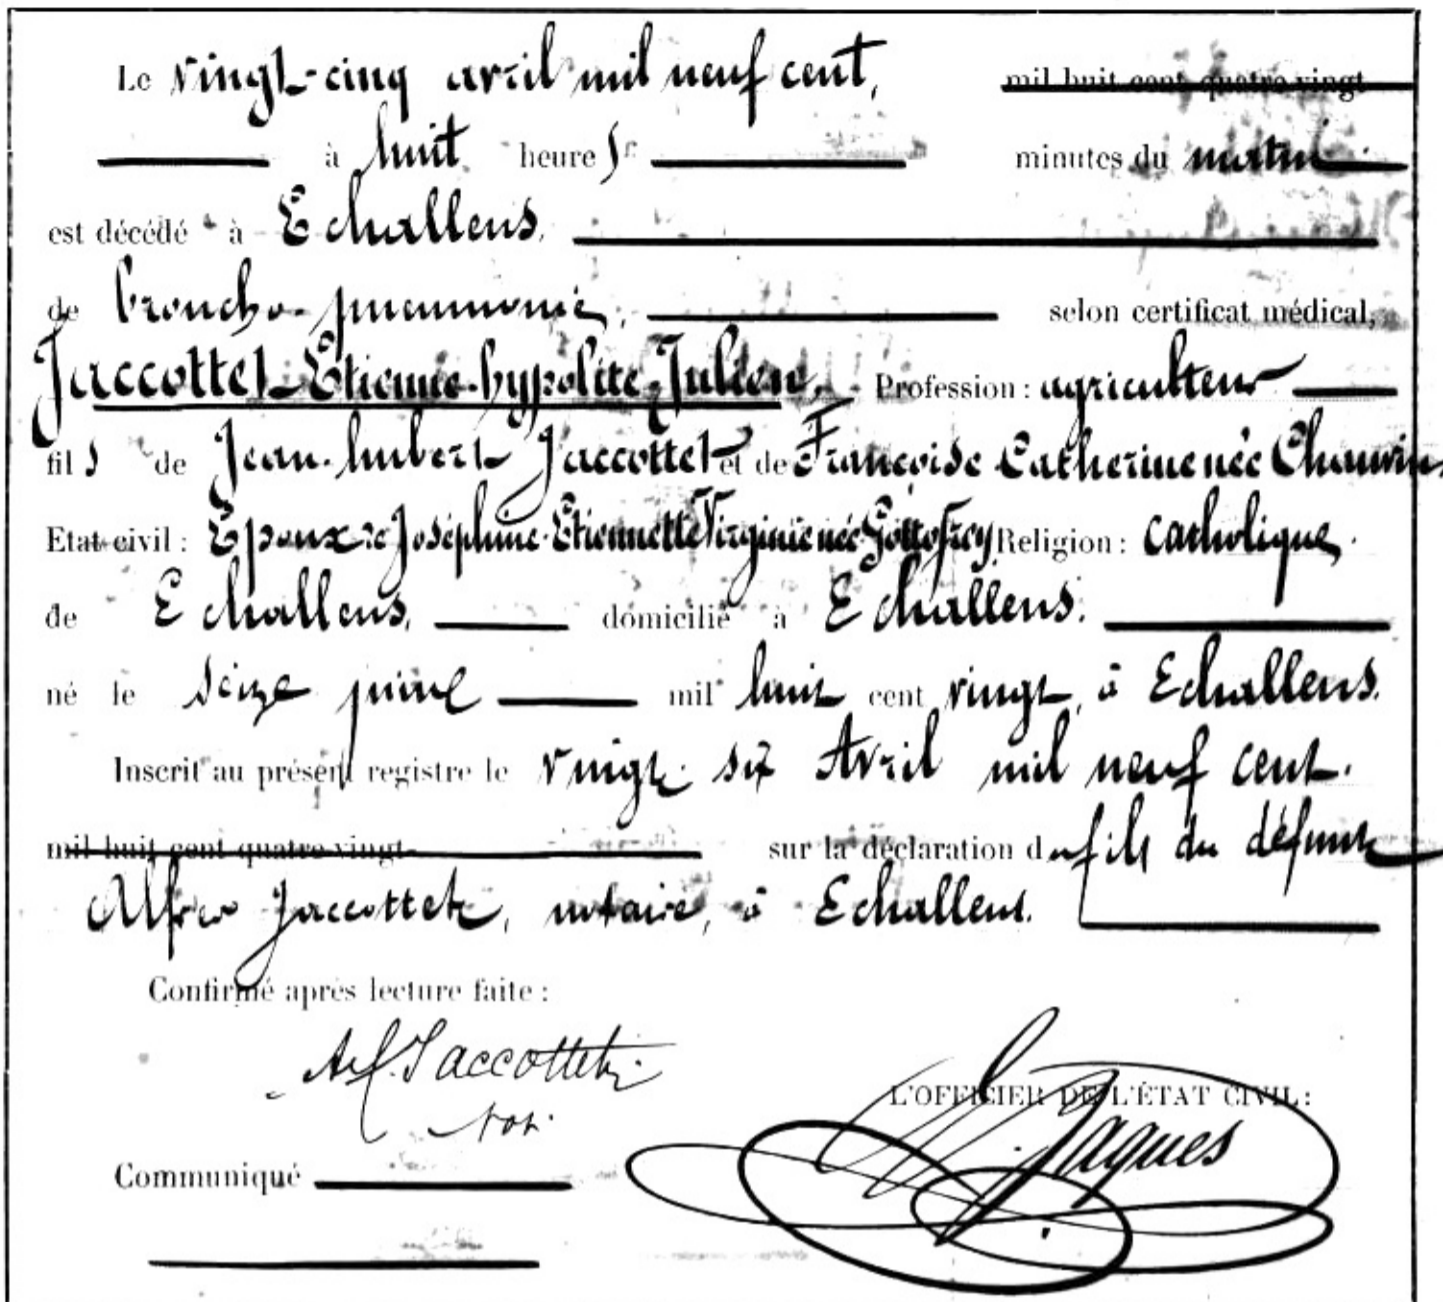 Le vingt-cinq avril mil neuf cent, mil huit cent quatre-vingt
à huit heures minutes du matin
est décédé à Echallens.
de broncho-pneumonie, selon certificat médical,
Jaccottet-Etienne-hypolite-Julien. Profession : agriculteur
fils de Jean-hubert Jaccottet et de Françoise Catherine née Chauvin
Etat-civil : Epoux de Joséphine-Etiennette Virginie née Gottofrey Religion : catholique.
de Echallens. domicilié à Echallens.
né le seize juin mil huit cent vingt, à Echallens.
Inscrit au présent registre le vingt-six Avril mil neuf cent.
mil huit cent quatre-vingt- sur la déclaration du fils du défunt
Alfred Jaccottet, notaire, à Echallens.
Confirmé après lecture faite :
Alf. Jaccottet
not.
L'OFFICIER DE L'ÉTAT CIVIL :
Jaques
Communiqué